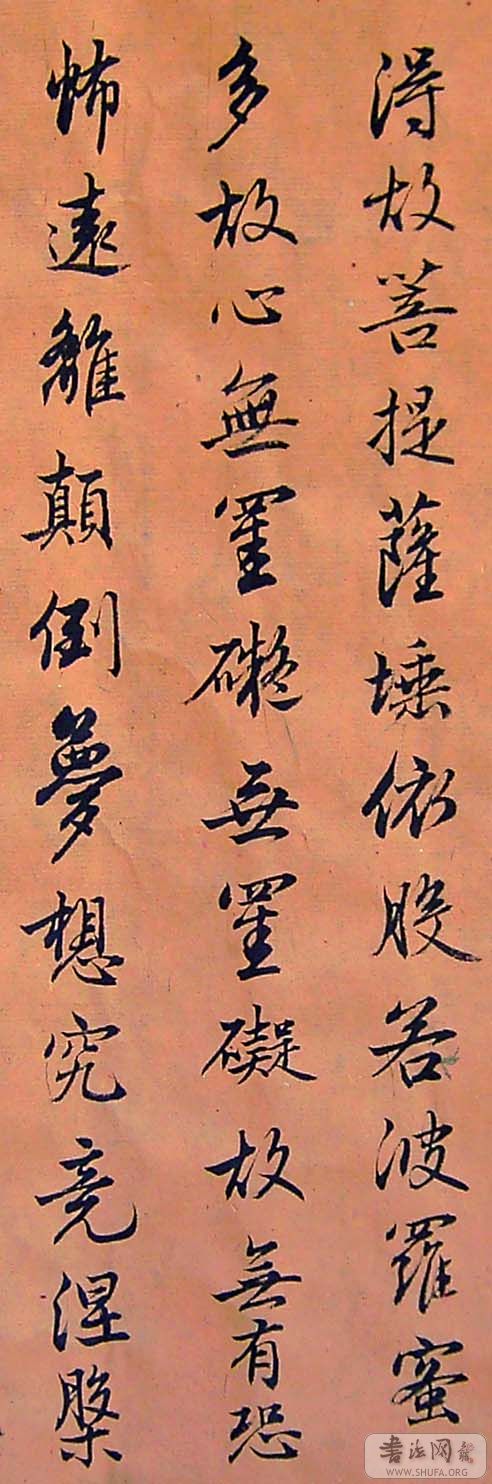 得故菩提薩埵依般若波羅蜜
多故心無罣礙無罣礙故無有恐
怖遠離顛倒夢想究竟涅槃
書法网
WWW.SHUFA.ORG